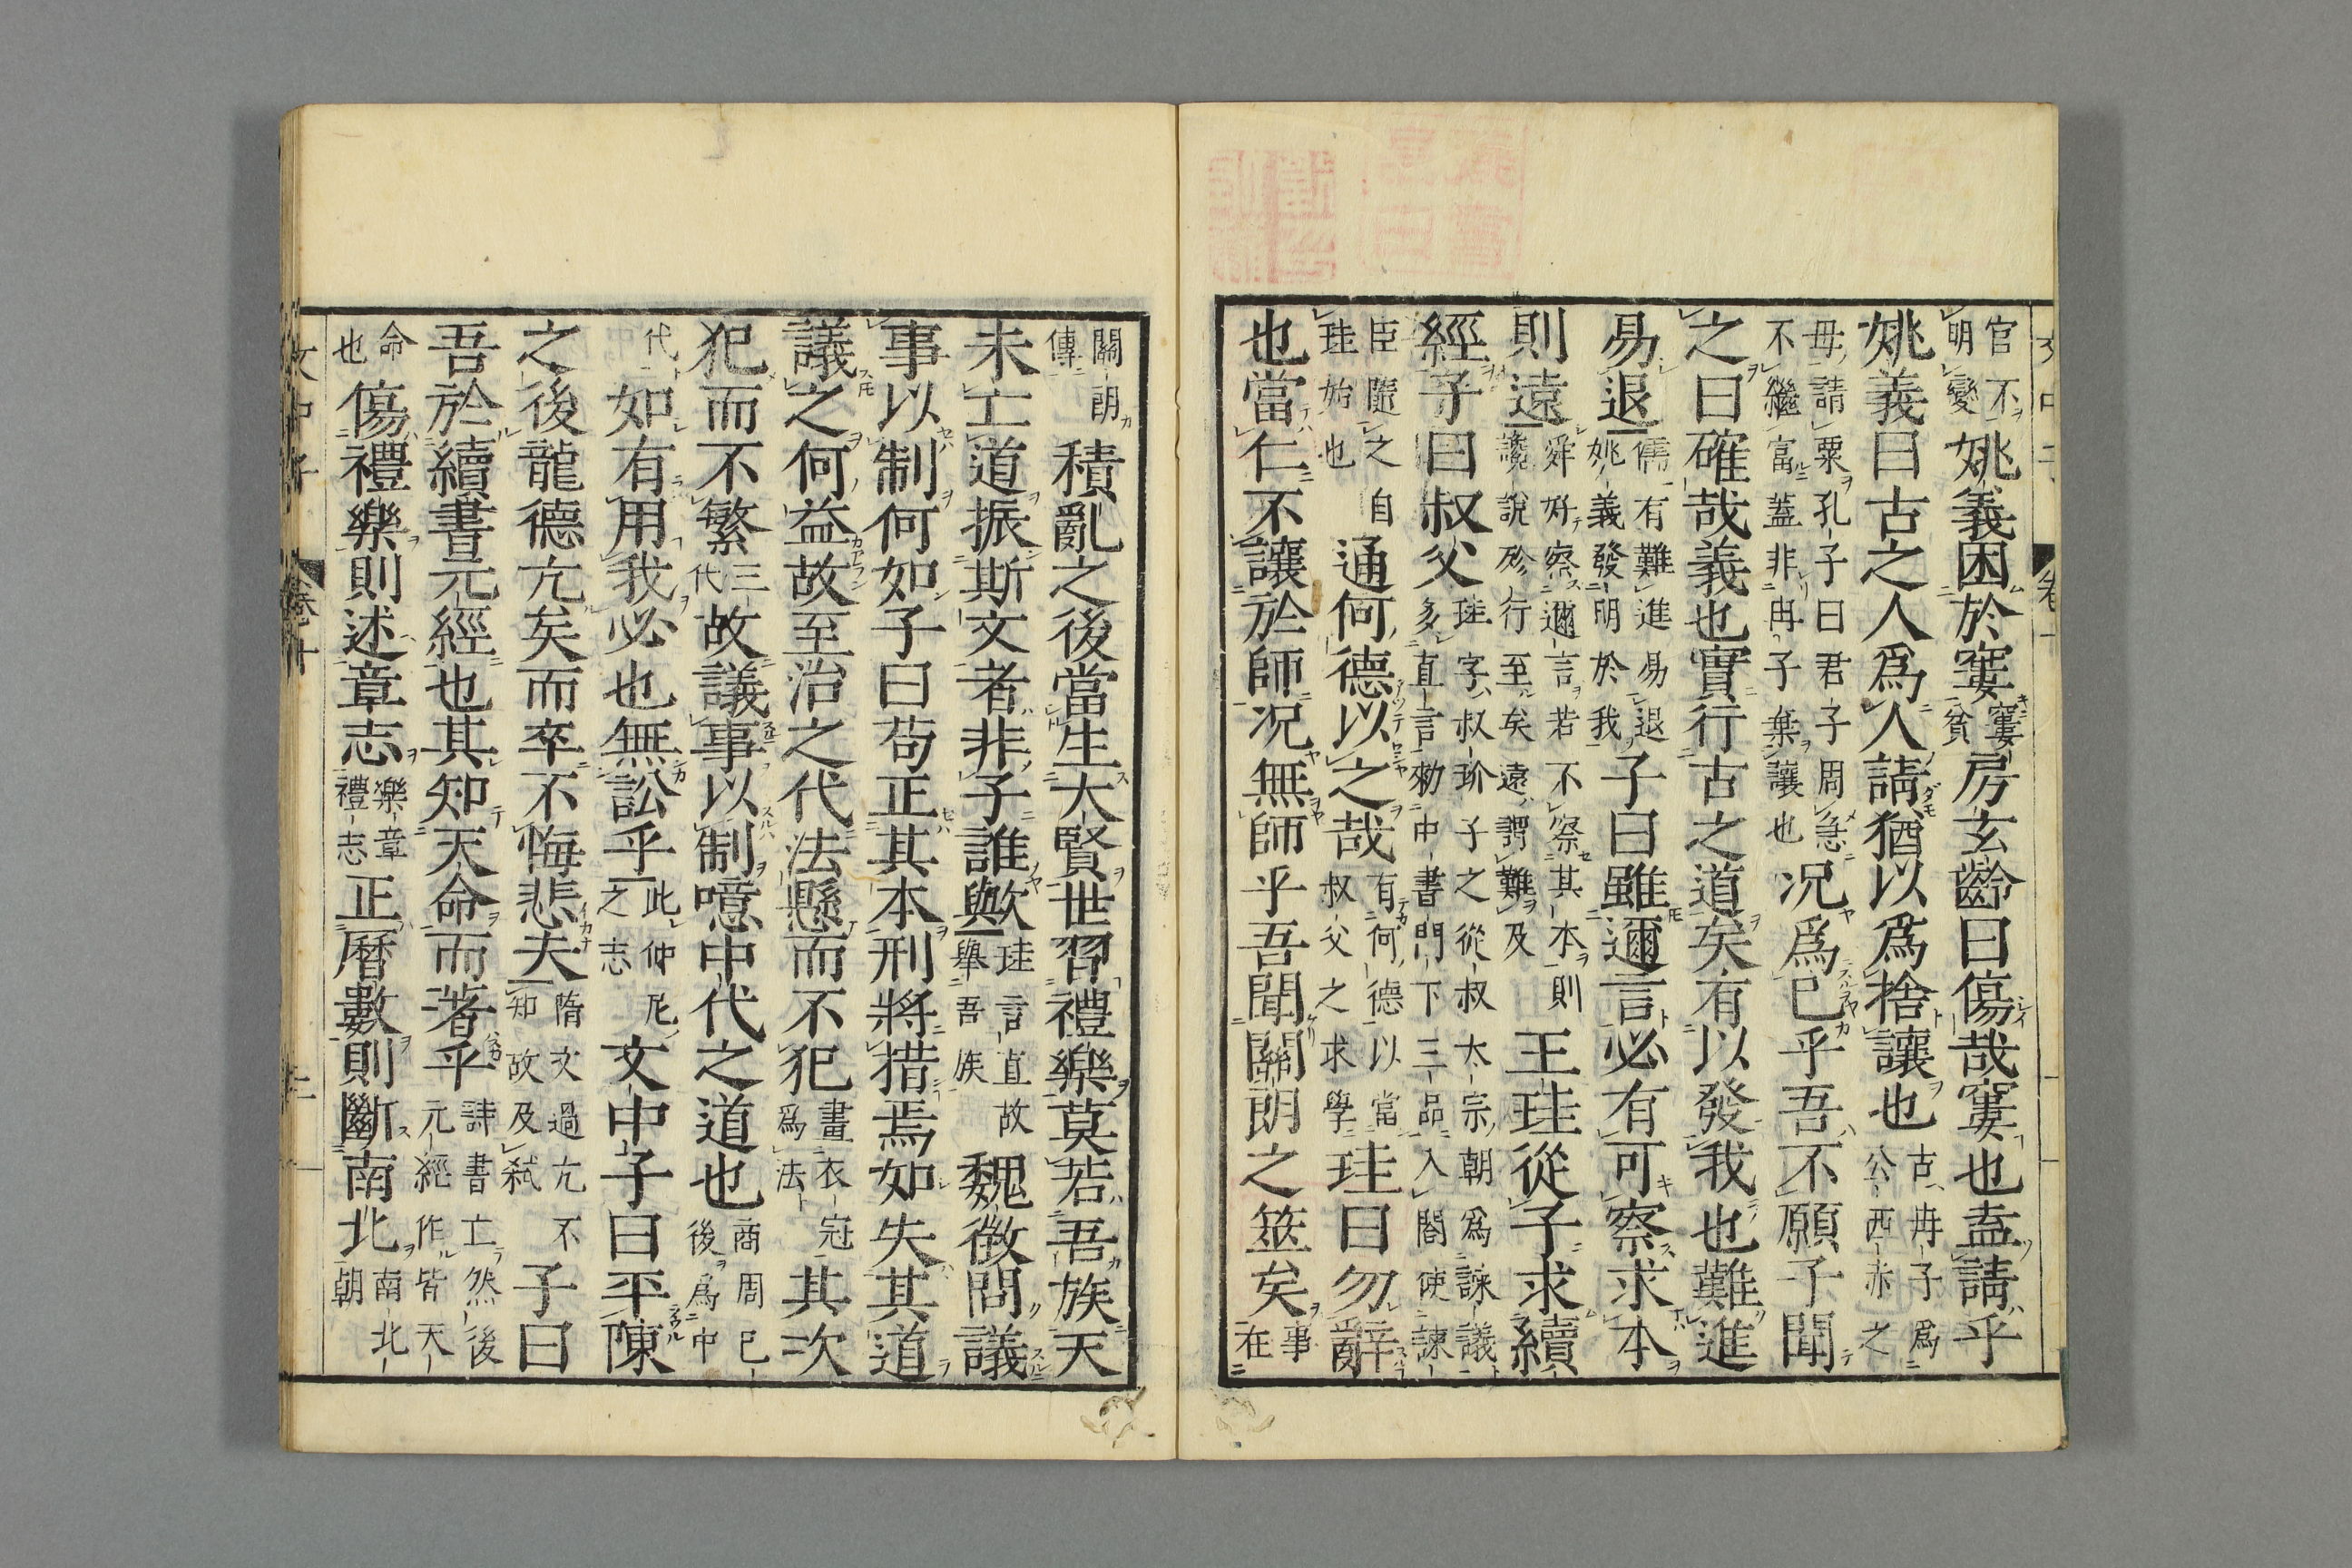 官不明變姚義困於窶窶貧房玄齡曰傷哉窶也盍請乎
姚義曰古之人爲人請猶以爲捨讓也古冉子爲公西赤之
母請粟孔子曰君子周急不繼富蓋非冉子棄讓也况爲已乎吾不願子聞
之曰確哉義也實行古之道矣有以發我也難進
易退儒有難進易退姚義發明於我子曰雖邇言必有可察求本
則遠舜好察邇言若不察其本則讒說殄行至矣遠謂難及王珪從子求續
經子曰叔父珪字叔玠子之從叔太宗朝爲諫議多直言勑中書門下三品入閤使諫
臣隨之自珪始也通何德以之哉有何德以當叔父之求學珪曰勿辭
也當仁不讓於師况無師乎吾聞關朗之筮矣事在
關朗傳積亂之後當生大賢世習禮樂莫若吾族天
未亡道振斯文者非子誰歟珪言直故舉吾族魏徵問議
事以制何如子曰苟正其本刑將措焉如失其道
議之何益故至治之代法懸而不犯畫衣冠爲法其次
犯而不繁三代故議事以制噫中代之道也商周已後爲中
代如有用我必也無訟乎此仲尼之志文中子曰平陳
之後龍德亢矣而卒不悔悲夫隋文過亢不知故及弑子曰
吾於續書元經也其知天命而著乎詩書亡然後元經作皆天
命也傷禮樂則述章志樂章禮志正曆數則斷南北南北朝
文中子 卷十